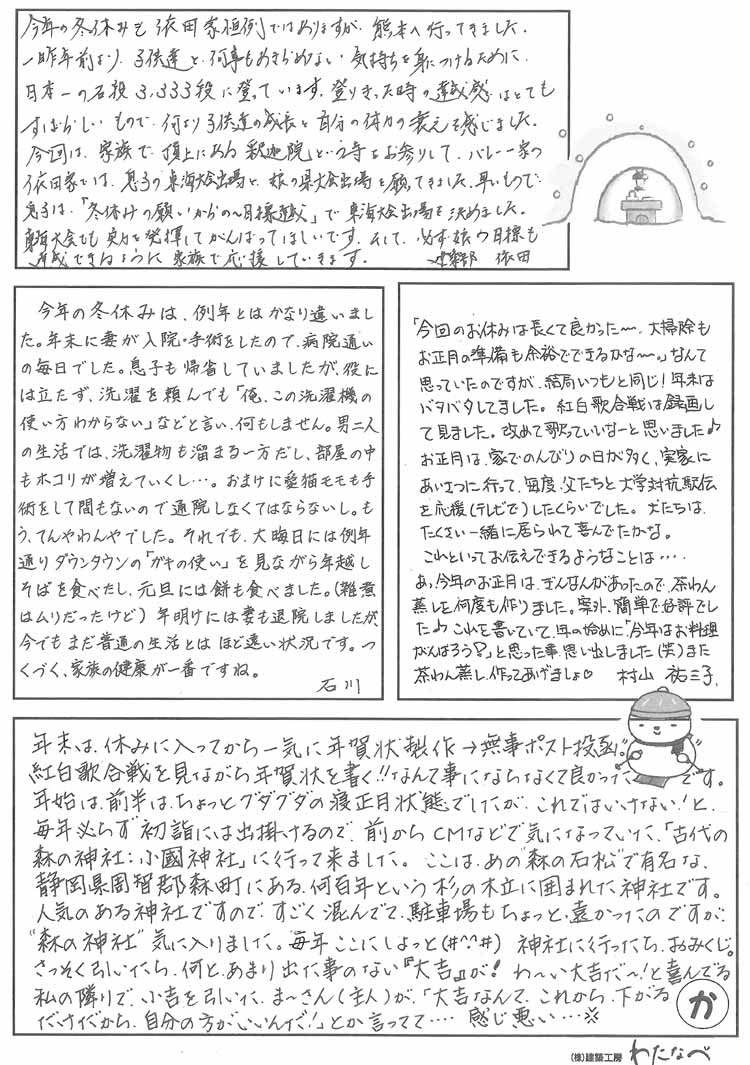 今年の冬休みも依田家恒例ではありますが、熊本へ行ってきました。
一昨年前より、子供達と、何事もあきらめない気持ちを身につけるために、
日本一の石段3,333段に登っています。登りきった時の達成感はとても
すばらしいもので、何より子供達の成長と自分の体力の衰えを感じました。
今回は、家族で頂上にある釈迦院という寺をお参りして、バレー一家の
依田家では、息子の東海大会出場と、娘の県大会出場を願ってきました。早いもので
息子は、「冬休みの願いからの〜目標達成」で東海大会出場を決めました。
東海大会でも実力を発揮してがんばってほしいです。そして、必ず娘の目標も
達成できるように家族で応援していきます。 建築部 依田
今年の冬休みは、例年とはかなり違いまし
た。年末に妻が入院・手術をしたので、病院通い
の毎日でした。息子も帰省していましたが、役に
は立たず、洗濯を頼んでも「俺、この洗濯機の
使い方わからない」などと言い、何もしません。男二人
の生活では、洗濯物も溜まる一方だし、部屋の中
もホコリが増えていくし…。おまけに愛猫モモも手
術をして間もないので通院しなくてはならないし。も
う、てんやわんやでした。それでも、大晦日には例年
通りダウンタウンの「ガキの使い」を見ながら年越し
そばを食べたし、元旦には餅も食べました。(雑煮
はムリだったけど) 年明けには妻も退院しましたが、
今でもまだ普通の生活とはほど遠い状況です。つ
くづく、家族の健康が一番ですね。
石川
「今回のお休みは長くて良かった〜、大掃除も
お正月の準備も余裕でできるかな〜。」なんて
思っていたのですが、結局いつもと同じ!年末は
バタバタしてました。紅白歌合戦は録画し
て見ました。改めて歌っていいなーと思いました♪
お正月は、家でのんびりの日が多く、実家に
あいさつに行って、毎度、父たちと大学対抗駅伝
を応援(テレビで)したくらいでした。犬たちは、
たくさん一緒に居られて喜んでたかな。
これといってお伝えできるようなことは‥‥
あ、今年のお正月は、ぎんなんがあったので、茶わん
蒸しを何度も作りました。案外、簡単で好評でし
た♪これを書いていて、年の始めに「今年はお料理
がんばろう?」と思った事、思い出しました(笑)また
茶わん蒸し、作ってあげましょ♡ 村山 祐三子
年末は、休みに入ってから一気に年賀状製作→無事ポスト投函。
紅白歌合戦を見ながら年賀状を書く!!なんて事にならなくて良かったです。
年始は、前半は、ちょっとグダグダの寝正月状態でしたが、これではいけない!と、
毎年必らず初詣には出掛けるので、前からCMなどで気になっていた、「古代の
森の神社:小國神社」に行って来ました。ここは、あの"森の石松"で有名な、
静岡県周智郡森町にある、何百年という杉の木立に囲まれた神社です。
人気のある神社ですので、すごく混んでて、駐車場もちょっと遠かったのですが、
"森の神社"気に入りました。毎年ここにしよっと(#^^#) 神社に行ったら、おみくじ。
さっそく引いたら、何と、あまり出た事のない『大吉』が! わ〜い大吉だ〜!と喜んでる
私の隣りで、小吉を引いた、ま〜さん(主人)が、「大吉なんて、これから、下がる
だけだから、自分の方がいいんだ!」とか言ってて‥‥ 感じ悪い…※
か
(株)建築工房 わたなべ